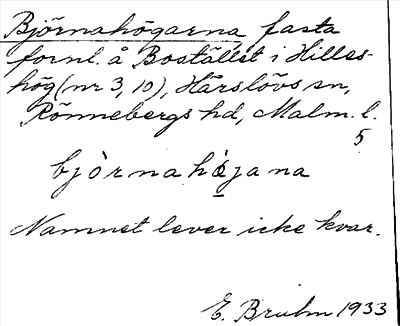 Björnahögarna fasta
fornl. å Bostället i Hilles-
hög (nr 3, 10), Härslövs sn,
Rönnebergs hd, Malm. l.
5
bjòrnahǿjana
Namnet lever icke kvar.
E. Bruhn 1933